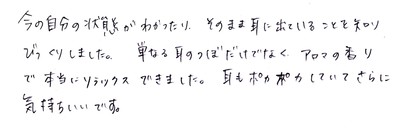 今の自分の状態がわかったり、そのまま耳に出ていることを知り
びっくりしました。単なる耳のつぼだけでなく、アロマの香り
で本当にリラックスできました。耳もポカポカしていてさらに
気持ちいいです。